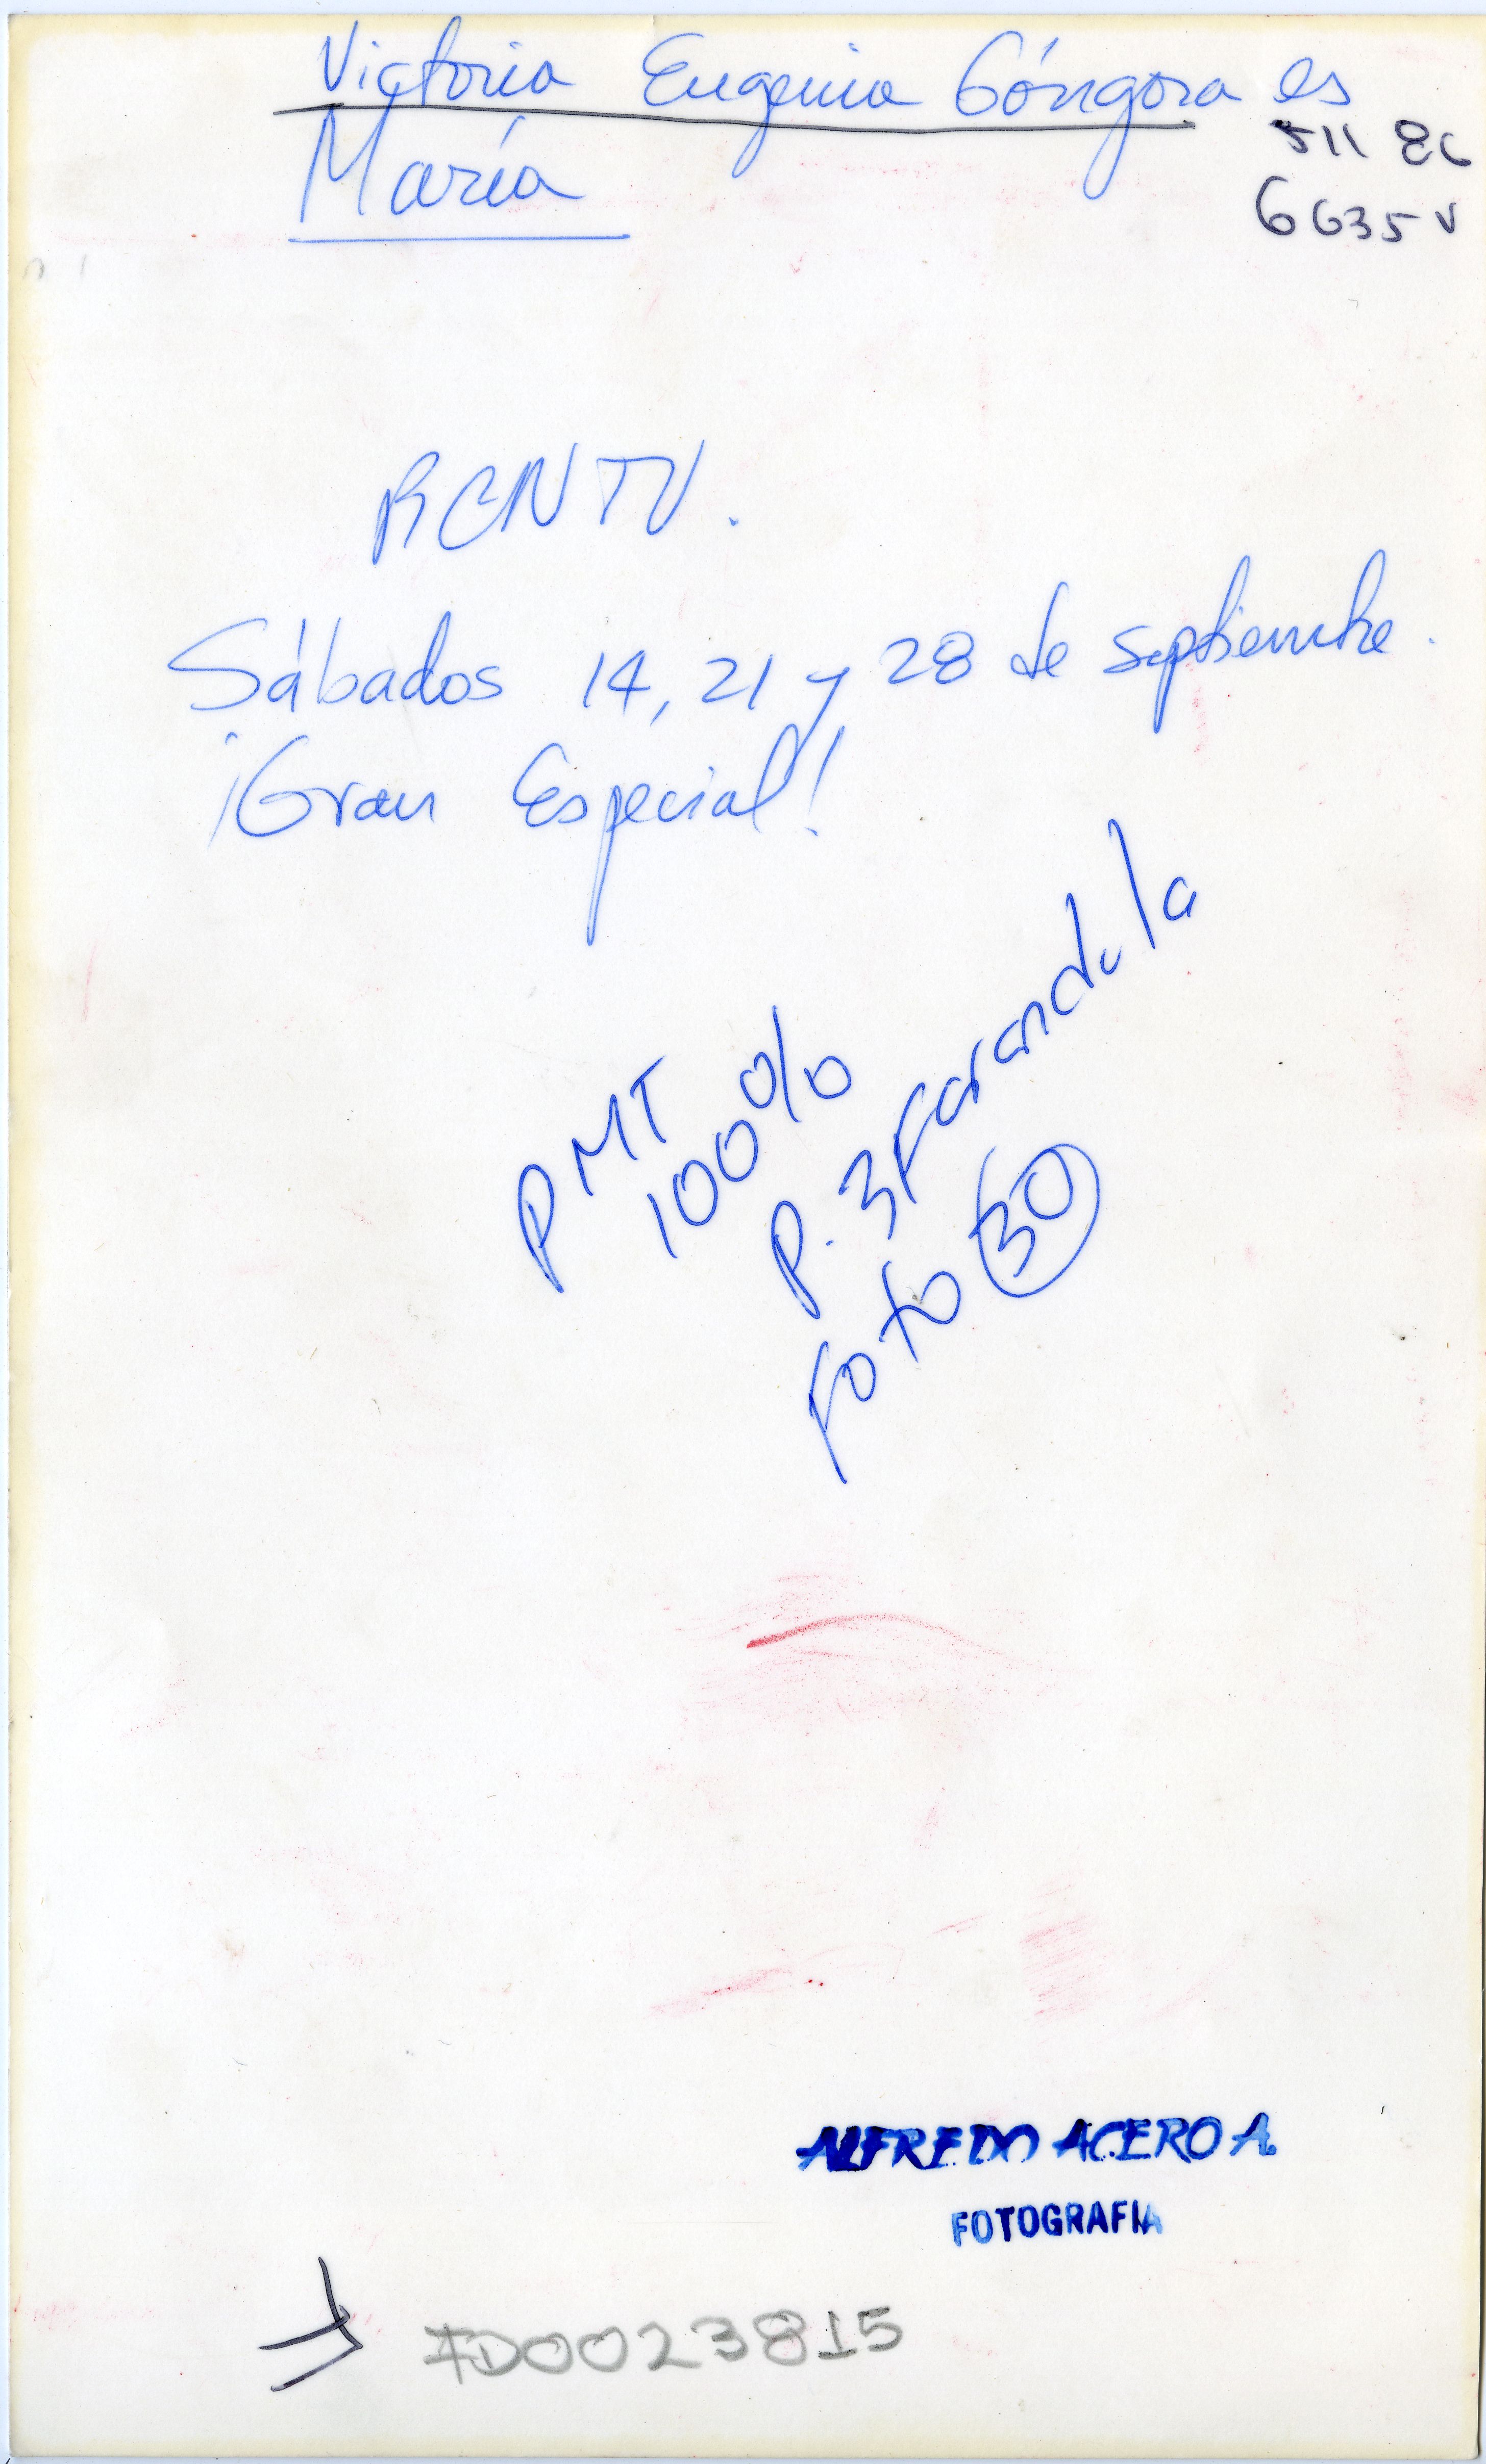 Victoria Eugenia Góngora es
María
6635 v
RCN TV.
Sábados 14, 21 y 28 de septiembre.
¡Gran Especial!
PMT
100 %
P. 3 Farandula
Foto 30
ALFREDO ACERO A.
FOTOGRAFIA
FD0023815